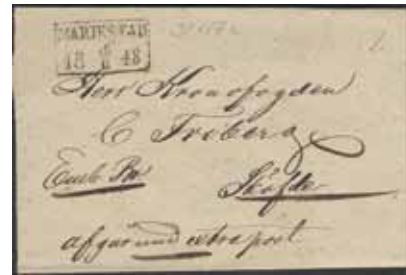 MARIESTAD
18 48
Herr Kronofogden
C Froberg
Embe Rn Sköfde
afgår med extra post.